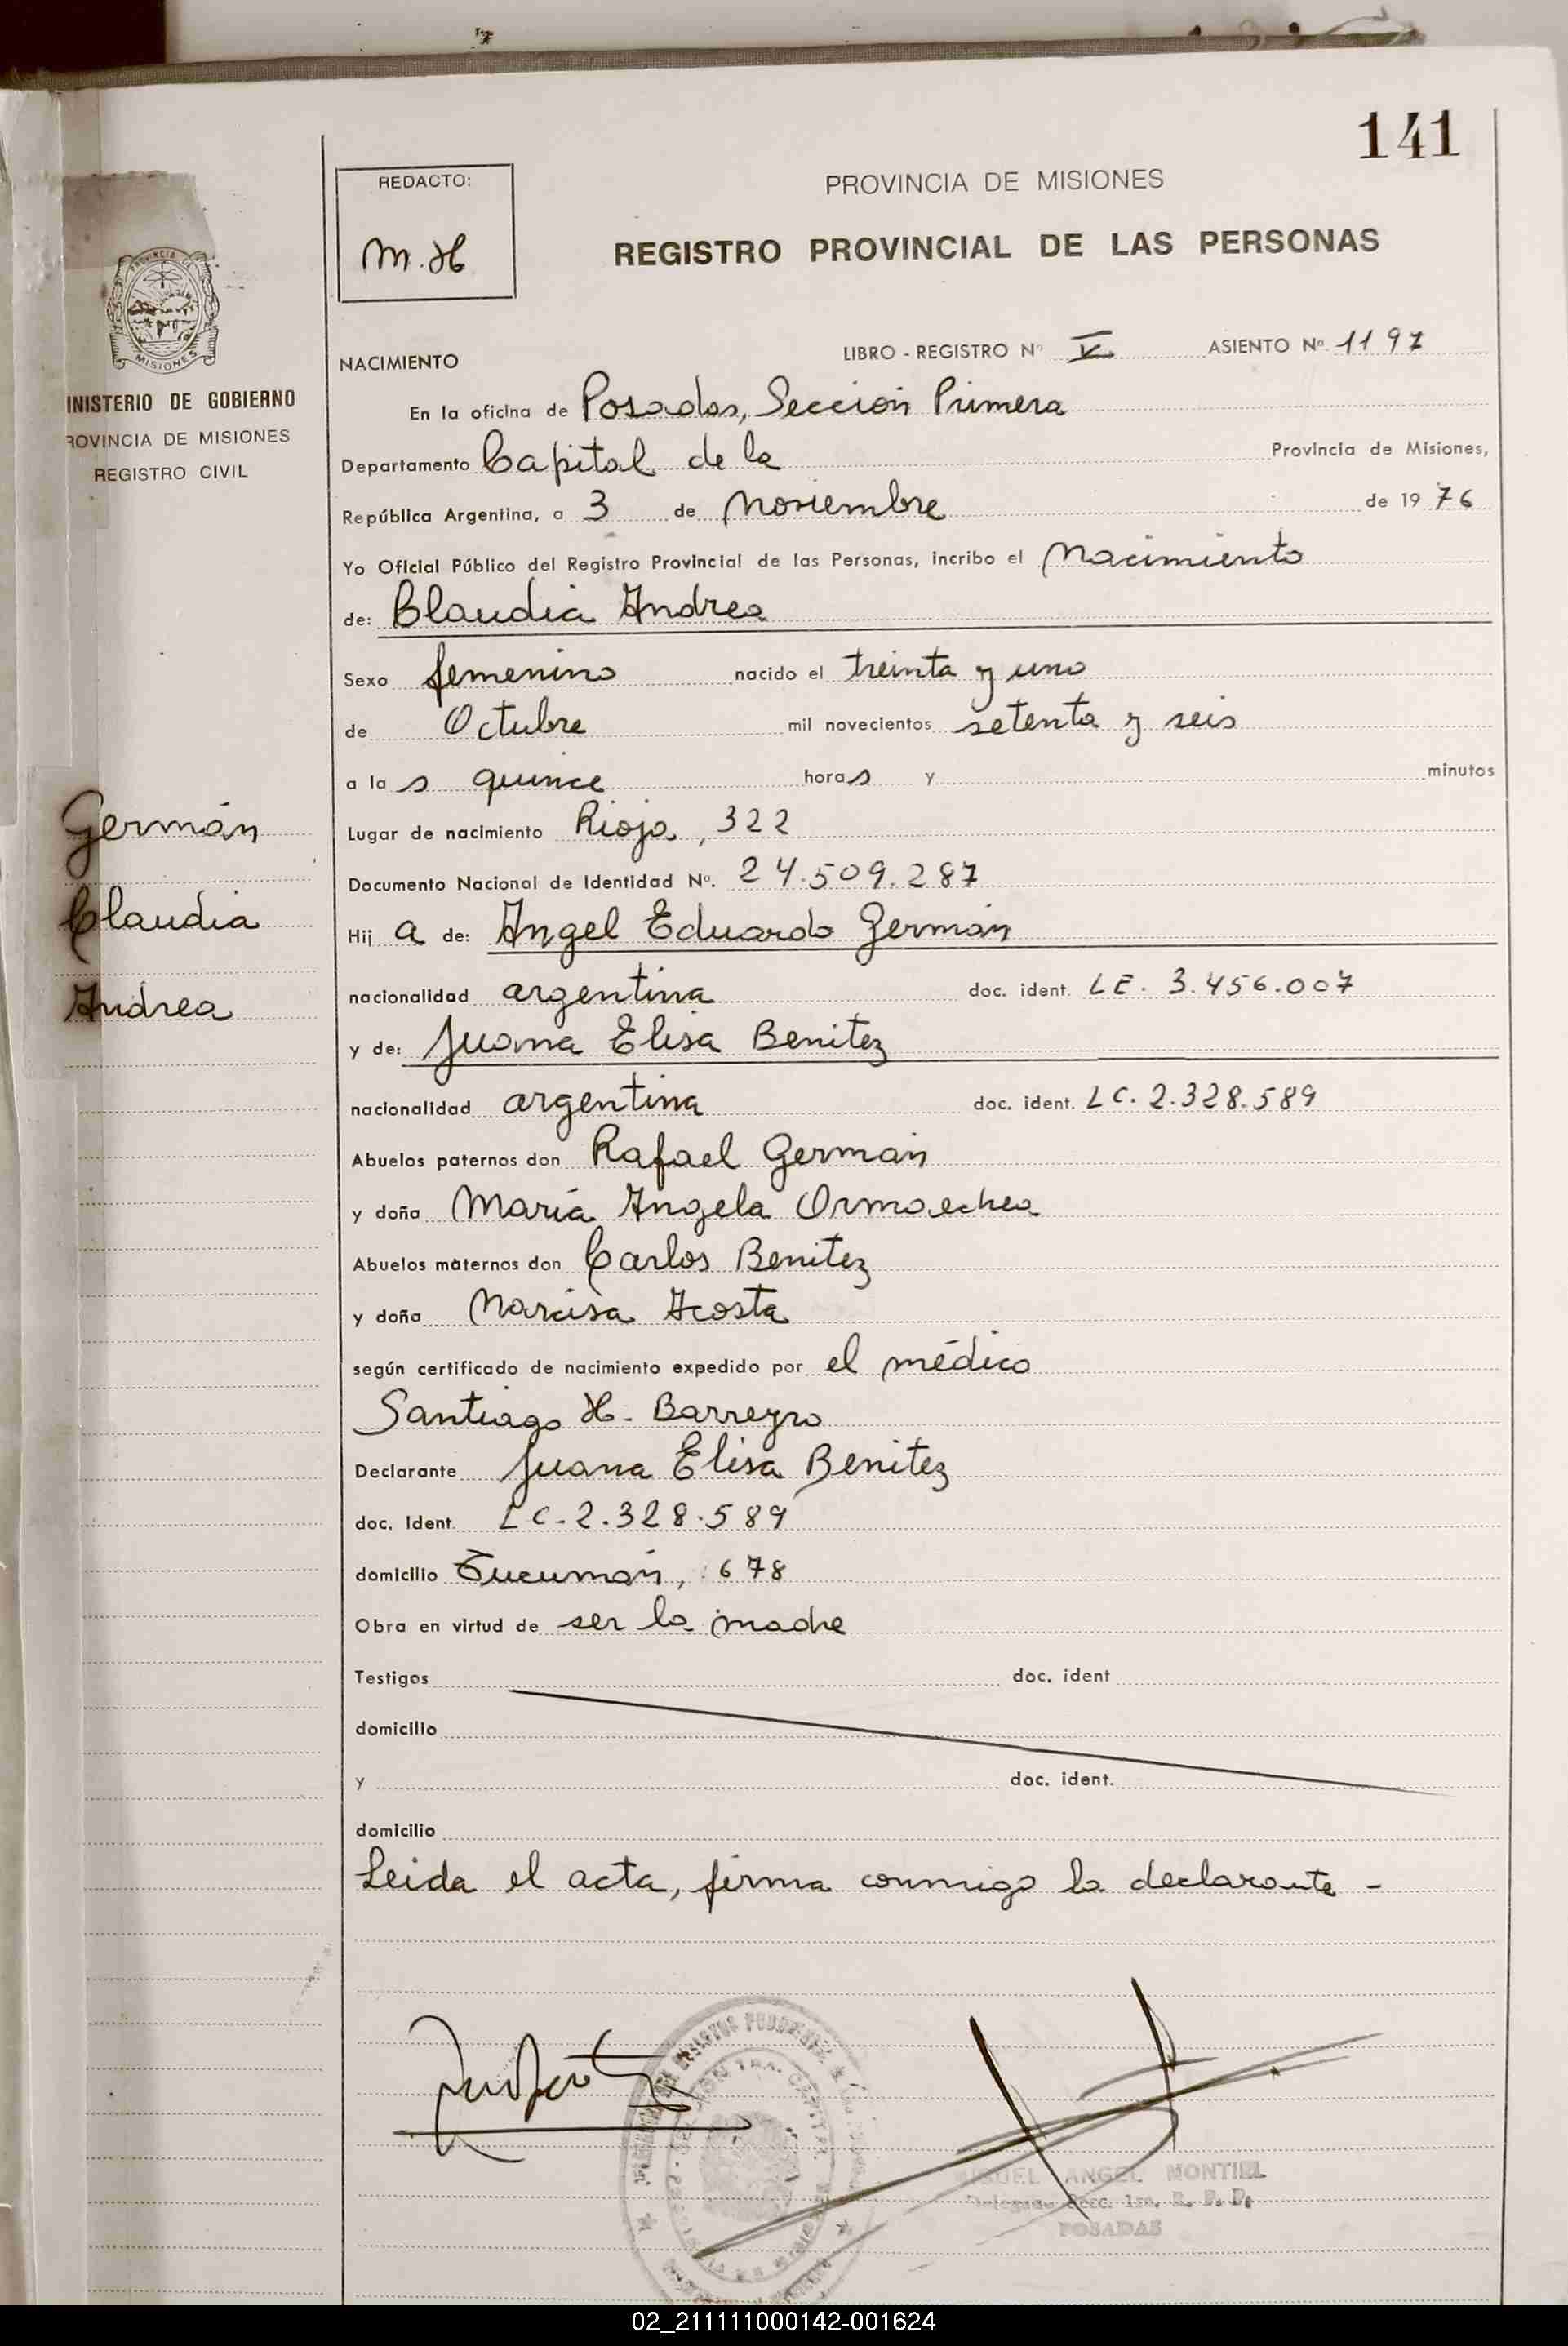 141
REDACTO:
M.H
PROVINCIA DE MISIONES
REGISTRO PROVINCIAL DE LAS PERSONAS
MISIONES
INISTERIO DE GOBIERNO
ROVINCIA DE MISIONES
REGISTRO CIVIL
Germán
Claudia
Andrea
NACIMIENTO LIBRO - REGISTRO Nº V ASIENTO Nº 1197
En la oficina de Posadas, Sección Primera
Departamento Capital de la Provincia de Misiones,
República Argentina, a 3 de Noviembre de 1976
Yo Oficial Público del Registro Provincial de las Personas, incribo el Nacimiento
de: Claudia Andrea
Sexo femenino nacido el treinta y uno
de Octubre mil novecientos setenta y seis
a la s quince horas y minutos
Lugar de nacimiento Rioja, 322
Documento Nacional de Identidad Nº. 24.509.287
Hij a de: Angel Eduardo Germán
nacionalidad argentina doc. ident. LE. 3.456.007
y de: Juana Elisa Benitez
nacionalidad argentina doc. ident. LC. 2.328.589
Abuelos paternos don Rafael Germán
y doña María Angela Ormaechea
Abuelos maternos don Carlos Benitez
y doña Narcisa Acosta
según certificado de nacimiento expedido por el médico
Santiago H. Barreyro
Declarante Juana Elisa Benitez
doc. Ident. LC-2.328.589
domicilio Tucumán, 678
Obra en virtud de ser la madre
Testigos doc. ident
domicilio
y doc. ident.
domicilio
Leida el acta, firma conmigo la declarante -
MIGUEL ANGEL MONTIEL
Delegado Secc. 1ra. R. P. P.
POSADAS
02_211111000142-001624